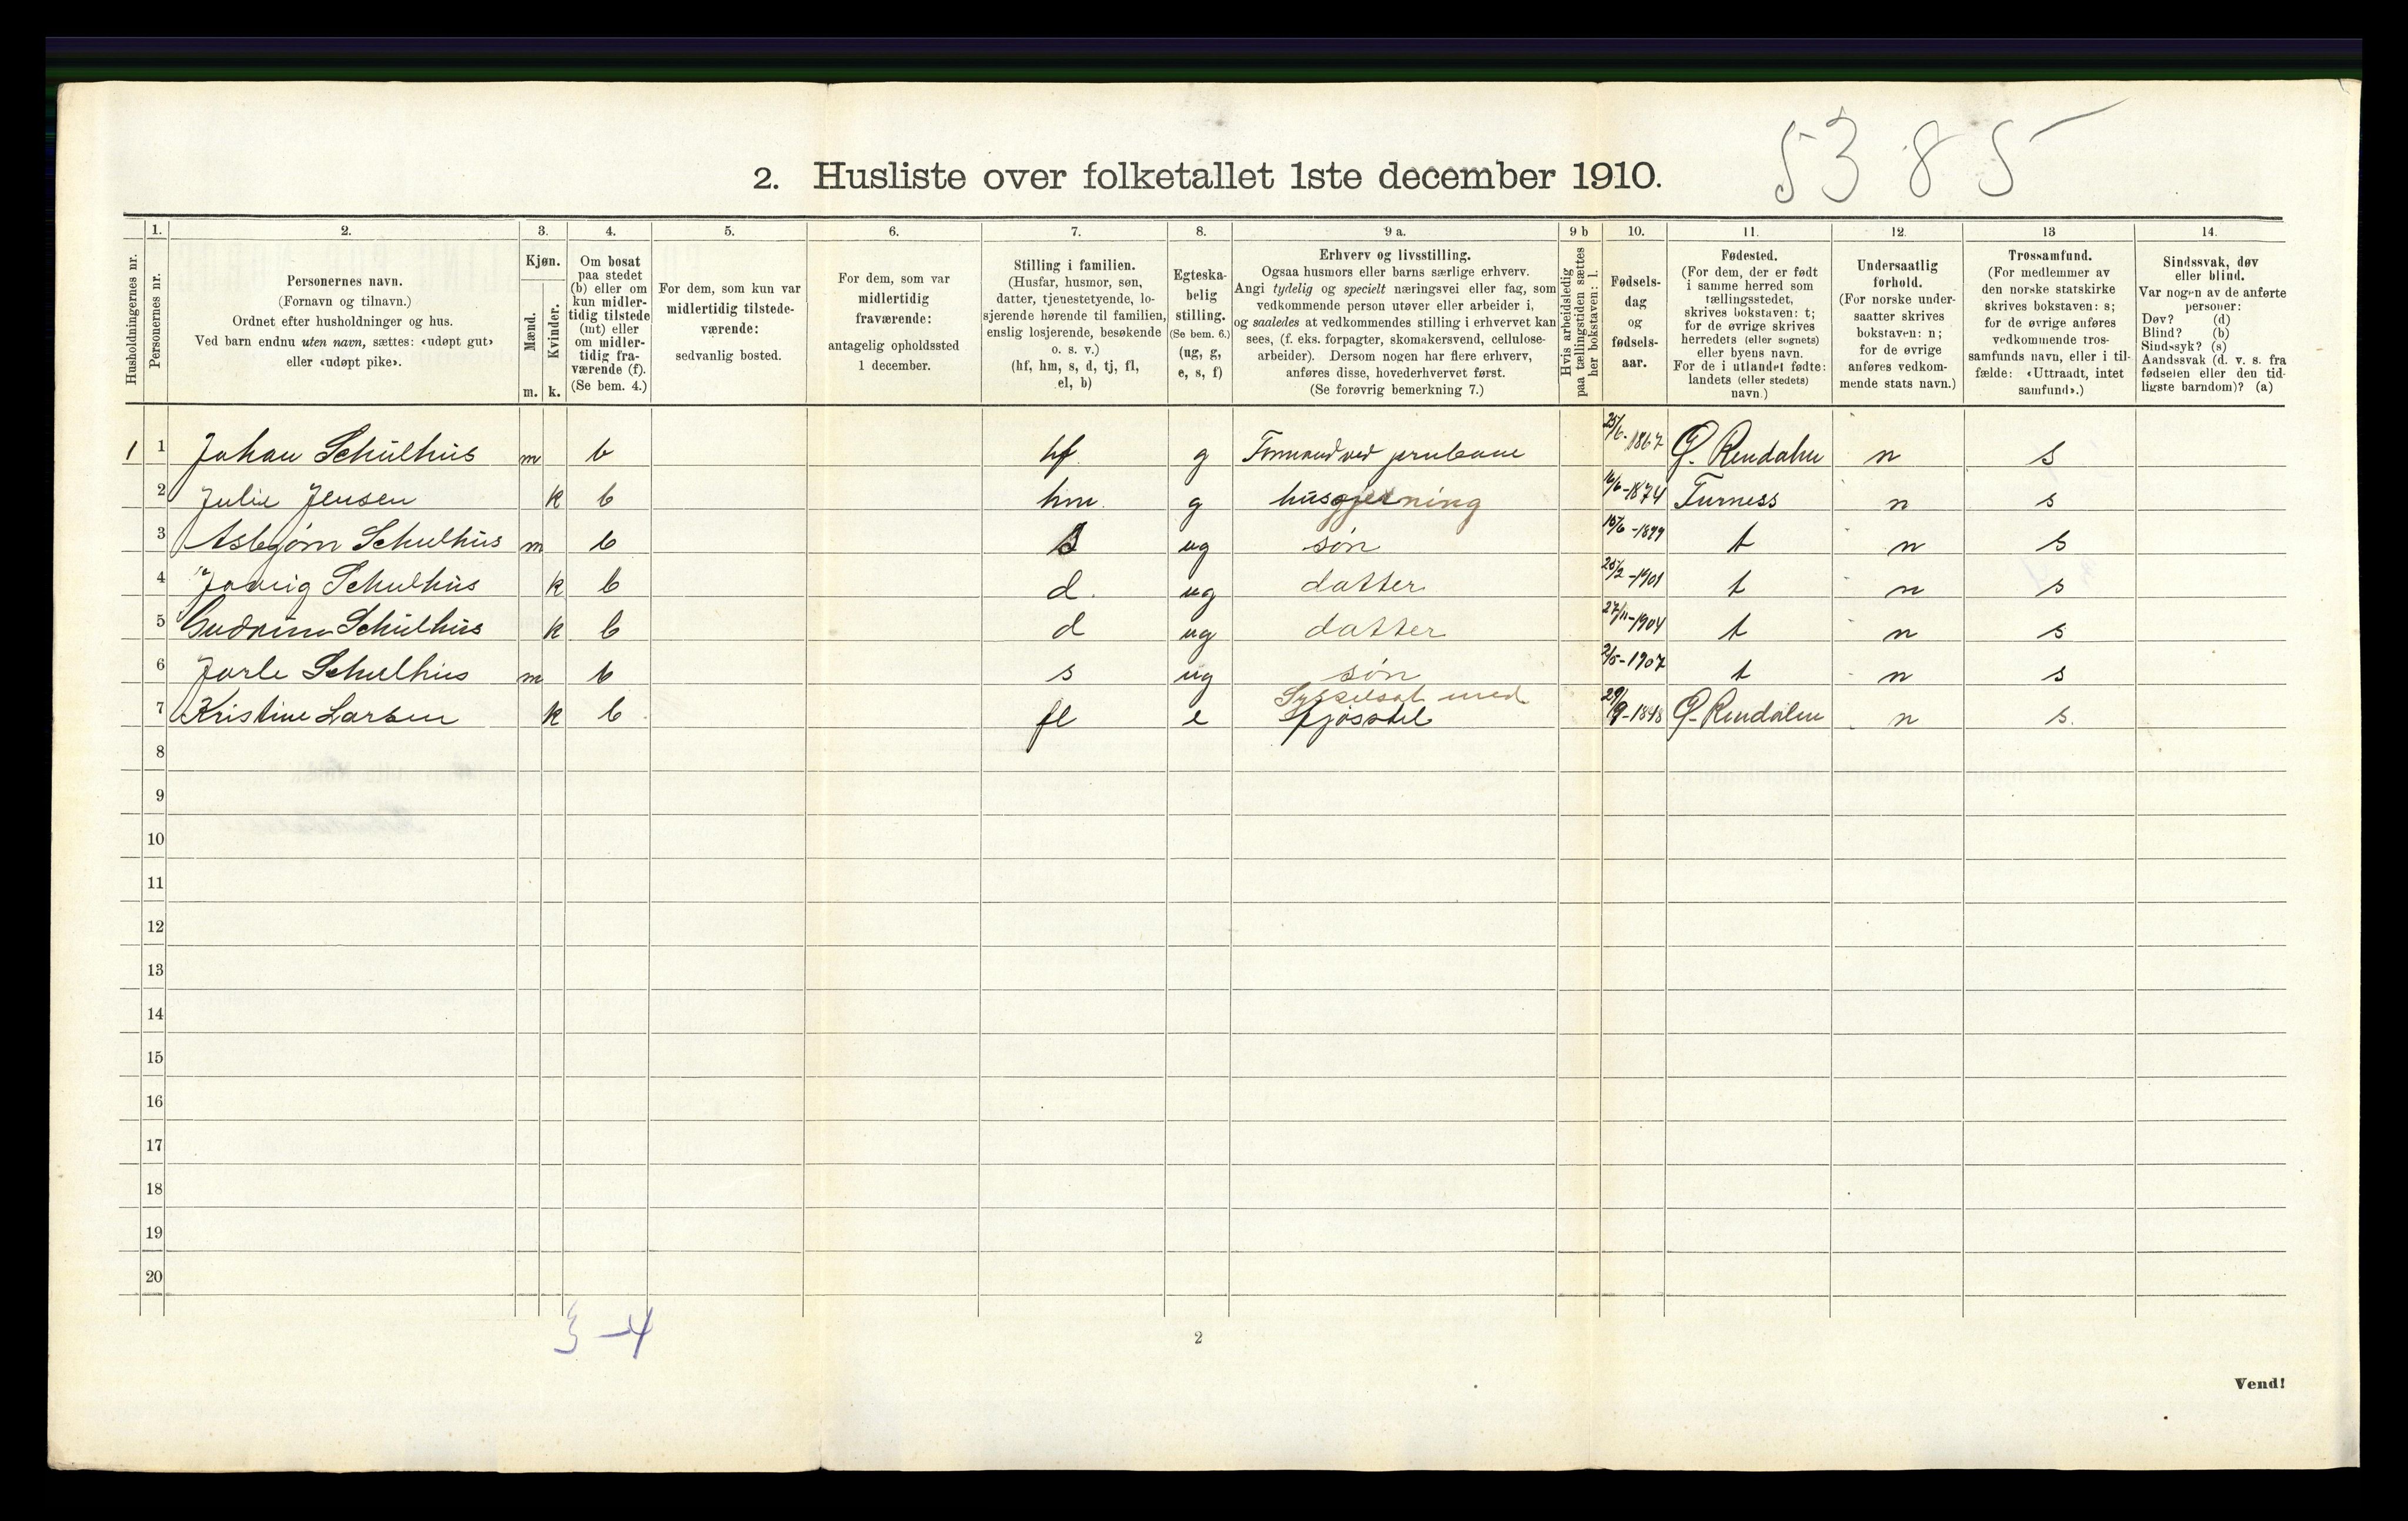 5385
2. Husliste over folketallet 1ste december 1910.
Husholdningernes nr.
1.
Personernes nr.
2.
Personernes navn.
(Fornavn og tilnavn.)
Ordnet efter husholdninger og hus.
Ved barn endnu uten navn, sættes: «udøpt gut»
eller «udøpt pike».
3.
Kjøn.
Mænd.
Kvinder.
m. k.
4.
Om bosat
paa stedet
(b) eller om
kun midler-
tidig tilstede
(mt) eller
om midler-
tidig fra-
værende (f).
(Se bem. 4.)
5.
For dem, som kun var
midlertidig tilstede-
værende:
sedvanlig bosted.
6.
For dem, som var
midlertidig
fraværende:
antagelig opholdssted
1 december.
7.
Stilling i familien.
(Husfar, husmor, søn,
datter, tjenestetyende, lo-
sjerende hørende til familien,
enslig losjerende, besøkende
o. s. v.)
(hf, hm, s, d, tj, fl,
el, b)
8.
Egteska-
belig
stilling.
(Se bem. 6.)
(ug, g,
e, s, f)
9 a.
Erhverv og livsstilling.
Ogsaa husmors eller barns særlige erhverv.
Angi tydelig og specielt næringsvei eller fag, som
vedkommende person utøver eller arbeider i,
og saaledes at vedkommendes stilling i erhvervet kan
sees, (f. eks. forpagter, skomakersvend, cellulose-
arbeider). Dersom nogen har flere erhverv,
anføres disse, hovederhvervet først.
(Se forøvrig bemerkning 7.)
9 b
Hvis arbeidsledig
paa tællingstiden sættes
her bokstaven: l.
10.
Fødsels-
dag
og
fødsels-
aar.
11.
Fødested.
(For dem, der er født
i samme herred som
tællingsstedet,
skrives bokstaven: t;
for de øvrige skrives
herredets (eller sognets)
eller byens navn.
For de i utlandet fødte:
landets (eller stedets)
navn.)
12.
Undersaatlig
forhold.
(For norske under-
saatter skrives
bokstaven: n;
for de øvrige
anføres vedkom-
mende stats navn.)
13
Trossamfund.
(For medlemmer av
den norske statskirke
skrives bokstaven: s;
for de øvrige anføres
vedkommende tros-
samfunds navn, eller i til-
fælde: «Uttraadt, intet
samfund».)
14.
Sindssvak, døv
eller blind.
Var nogen av de anførte
personer:
Døv? (d)
Blind? (b)
Sindssyk? (s)
Aandssvak (d. v. s. fra
fødselen eller den tid-
ligste barndom)? (a)
1 1 Johan Schulhus m b hf g Formand ved jernbane 25/6-1867 Ø. Rendalen n s
2 Julie Jensen k b hm. g husgjerning 16/6-1874 Furness n s
3 Asbjørn Schulhus m b s ug søn 15/6-1899 t n s
4 Schulhus k b d. ug datter 25/2-1901 t n s
5 Gudrun Schulhus k b d ug datter 27/11-1904 t n s
6 Jarle Schulhus m b s ug søn 2/5-1907 t n s
7 Kristine Larsen k b fl e Sysselsat med fjøsstel 29/9-1848 Ø. Rendalen n s.
8
9
10
11
12
13
14
15
16
17
18
19
20
3-4
2
Vend!